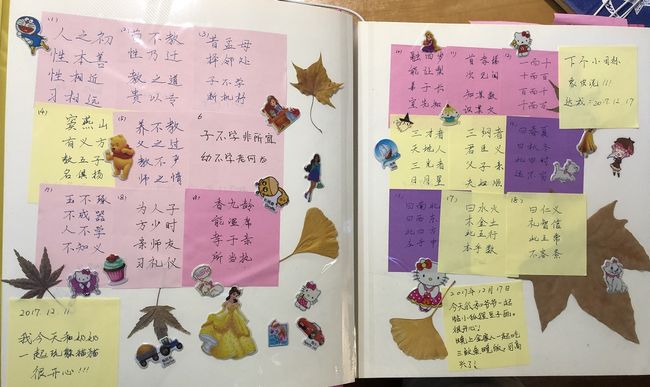 (1)
人之初
性本善
性相近
习相远
(2)
苟不教
性乃迁
教之道
贵以专
(3)
昔孟母
择邻处
子不学
断机杼
(4)
窦燕山
有义方
教五子
名俱扬
(5)
养不教
父之过
教不严
师之惰
6
子不学非所宜
幼不学老何为
(7)
玉不琢
不成器
人不学
不知义
(8)
为人子
方少时
亲师友
习礼仪
(9)
香九龄
能温席
孝于亲
所当执
2017.12.11.
我今天和奶奶
一起玩熊猫猫
很开心!!!
融四岁
能让梨
弟于长
宜先知
首孝悌
次见闻
知某数
识某文
一而十
十而百
百而千
千而万
下个小目标
家虫说!!!
达成:2017.12.17
三才者
天地人
三光者
日月星
三纲者
君臣义
父子亲
夫妇顺
曰春夏
曰秋冬
此四时
运不穷
曰南北
曰西东
此四方
应乎中
曰水火
木金土
此五行
本乎数
(18)
曰仁义
礼智信
此五常
不容紊
2017年12月17日
今天我和爷爷一起
很开心!
晚上全家人一起吃